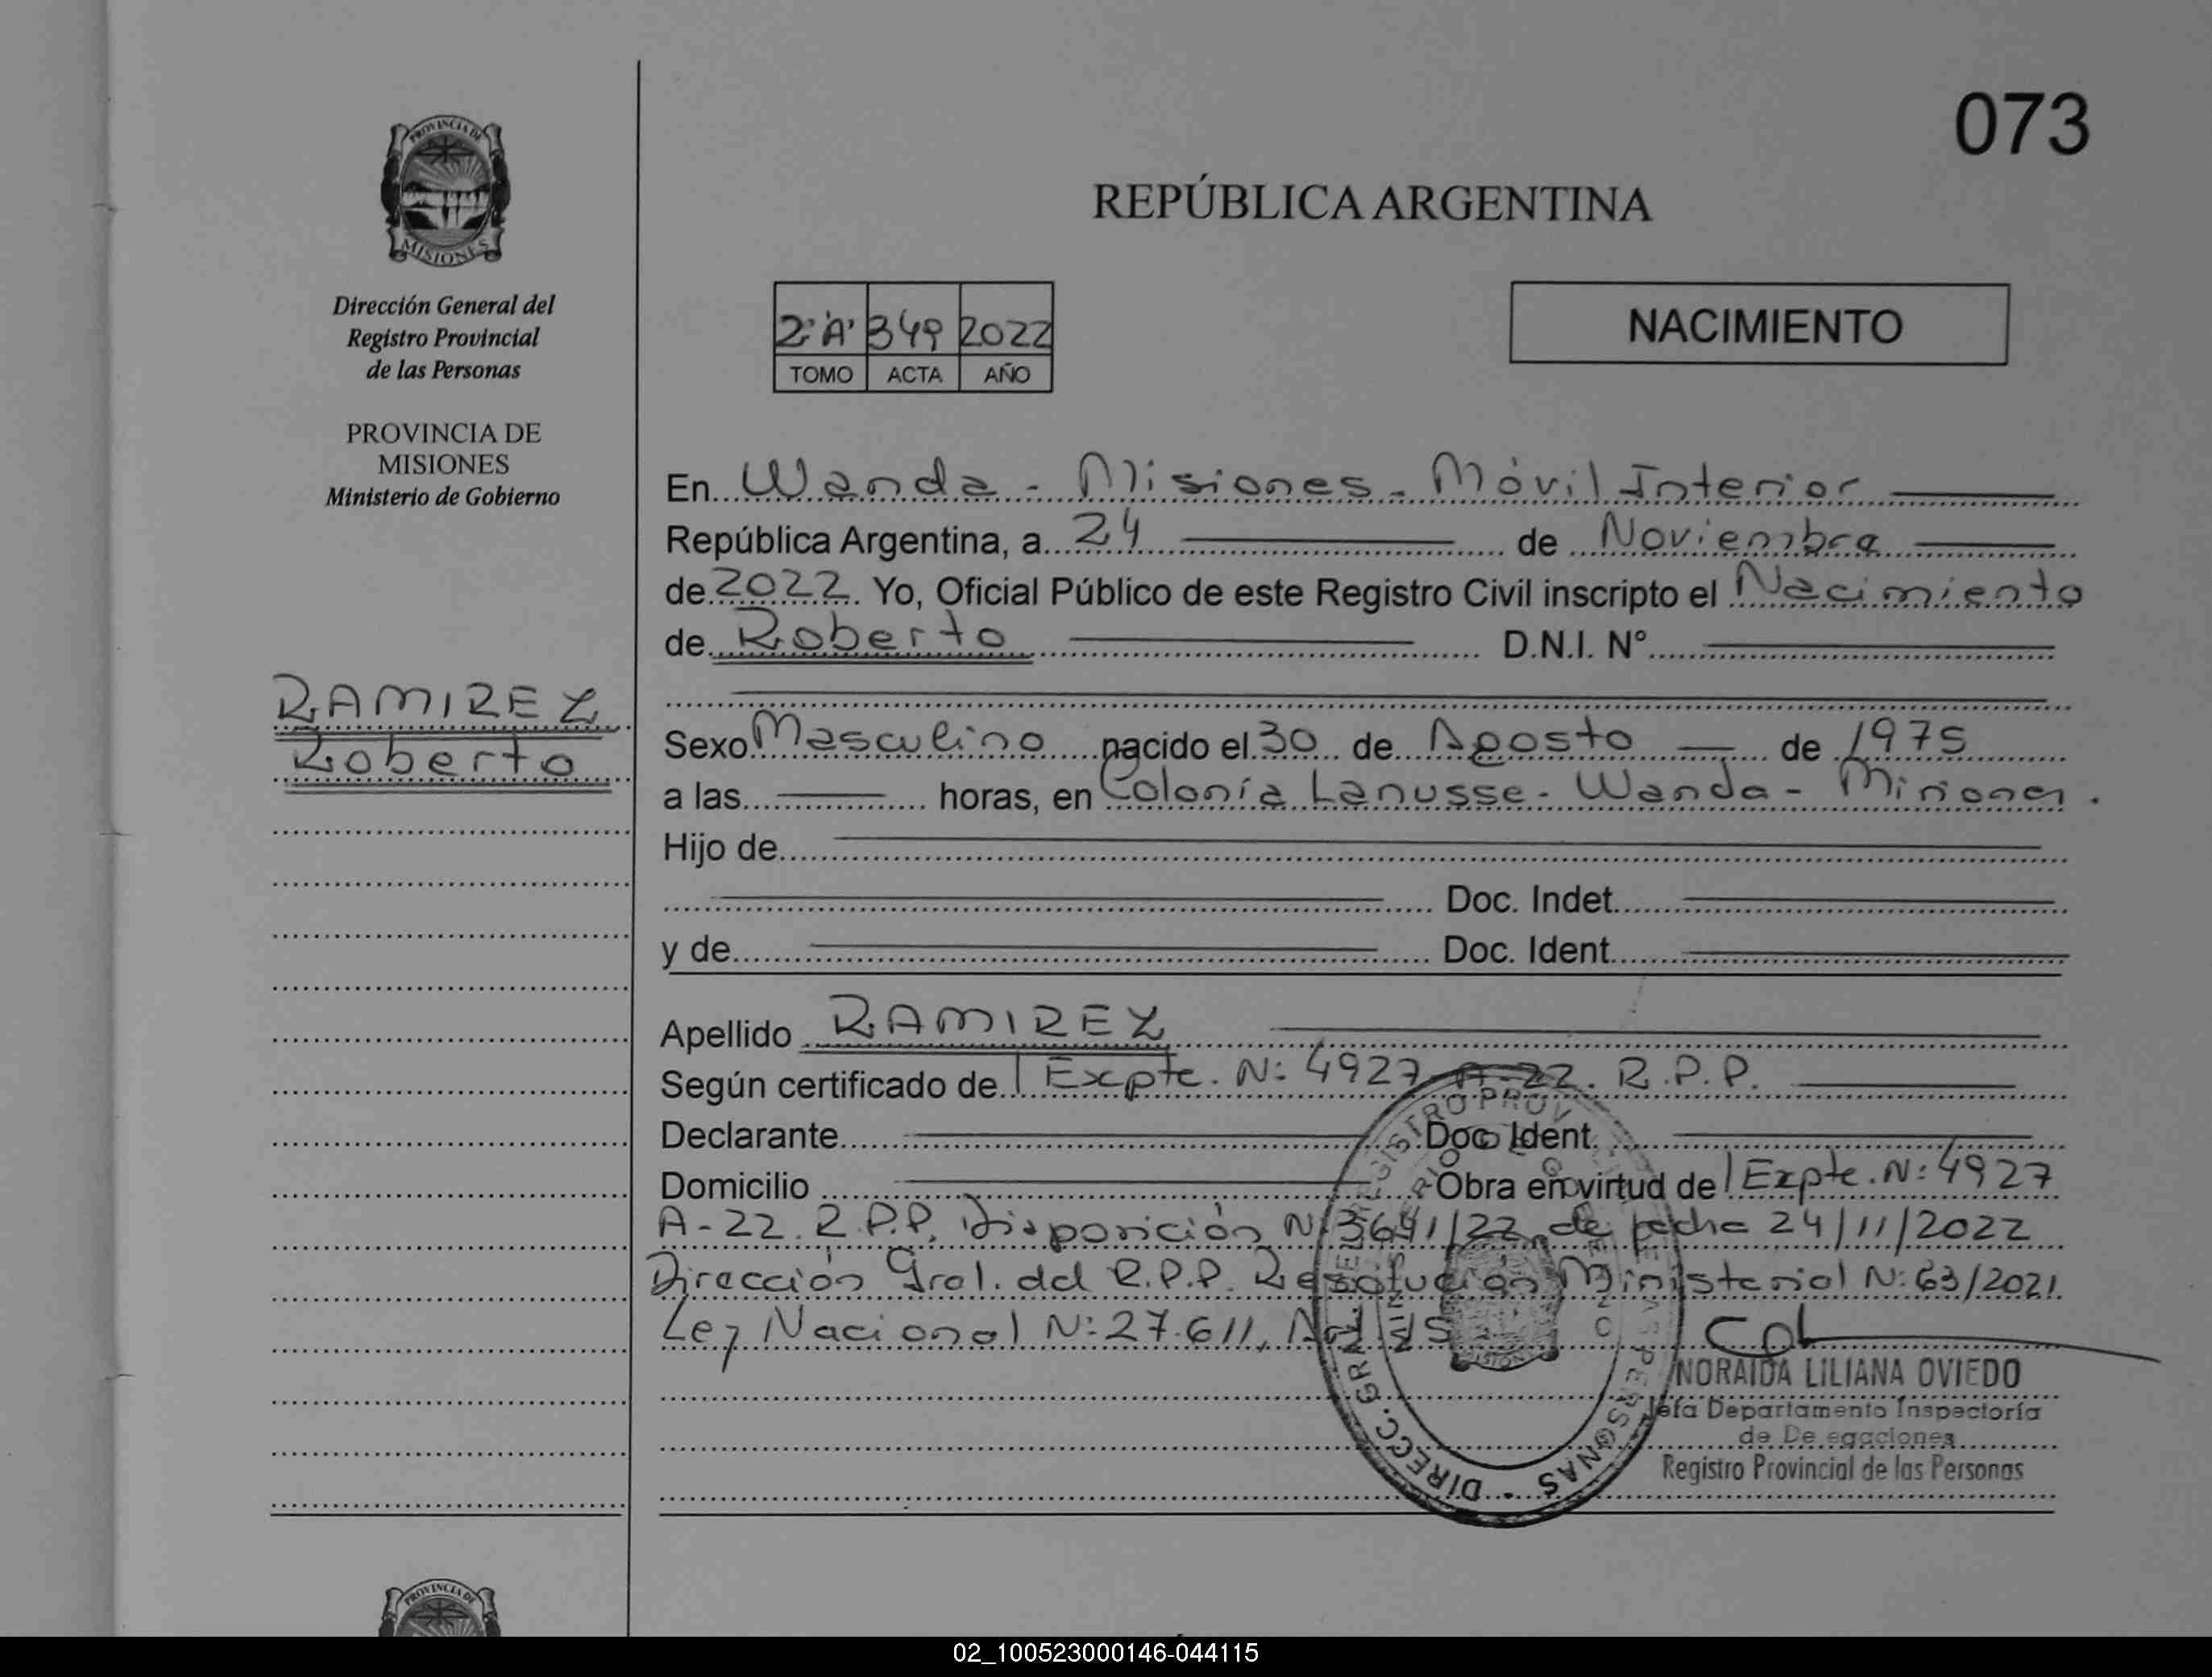 073
PROVINCIA DE
MISIONES
REPÚBLICA ARGENTINA
Dirección General del
Registro Provincial
de las Personas
PROVINCIA DE
MISIONES
Ministerio de Gobierno
2º "A" 349 2022
TOMO ACTA AÑO
NACIMIENTO
En Wanda - Misiones - Móvil Interior
República Argentina, a 24 de Noviembre
de 2022 Yo, Oficial Público de este Registro Civil inscripto el Nacimiento
de Roberto D.N.I. Nº
RAMIREZ
Roberto
Sexo Masculino nacido el 30 de Agosto de 1975
a las horas, en Colonia Lanusse - Wanda - Misiones.
Hijo de
Doc. Indet.
y de Doc. Ident.
Apellido RAMIREZ
Según certificado de Expte. Nº 4927 A-22. R.P.P.
Declarante Doc. Ident.
Domicilio Obra en virtud de Expte. Nº 4927
A-22. R.P.P. Disposición Nº 3641/22 de fecha 24/11/2022
Dirección Gral. del R.P.P. Resolución Ministerial Nº 63/2021
Ley Nacional Nº 27.611,
NORAIDA LILIANA OVIEDO
Jefa Departamento Inspectoría
de Delegaciones
Registro Provincial de las Personas
PROVINCIA DE
02_100523000146-044115